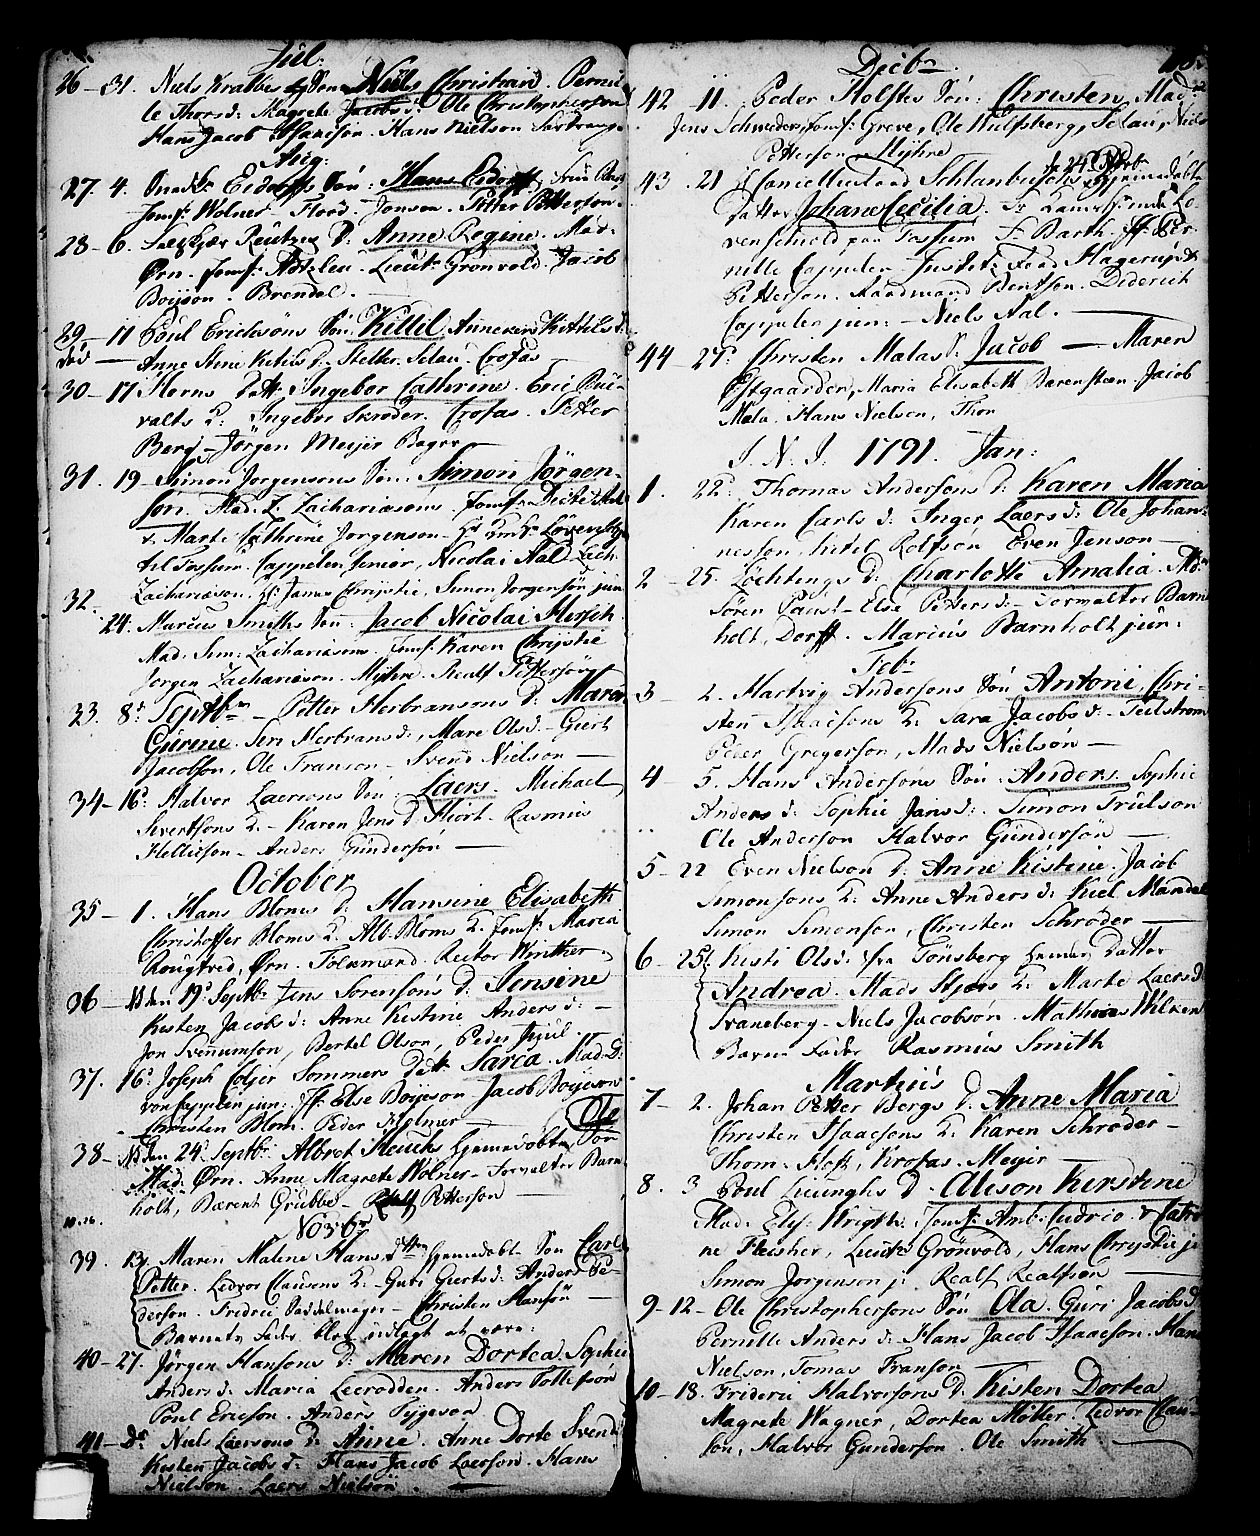 Jul:
26 – 31. Niels Krabbes Søn Niels Christian. Pernil-
le Thorsd: Magrete Jacobsd: Ole Christophersøn
Hans Jacob Isacsøn. Hans Nielsøn
Aug:
27. 4. Eidorffs Søn: Hans Eidorff
Jomf: Wolner – Flood. Jonsen. Petter Pettersøn.
28 – 6. Reutzer D: Anne Regine. Mad:
Ørn. Jomf: Lieut: Grønvold. Jacob
Boyson. Brendal.
29 – 11 Poul Ericksøns Søn: Kittil Anne Kittilsd:
Anne Stine D: Stetter. Selau. Crofas
30 – 17 Horns Datt: Ingebor Cathrine. Eric
valts D: Ingebor Skrøder. Crofas. Petter
Berg. Jørgen Meyer Bager
31. 19 – Simon Jorgensøns Søn: Simon Jörgen-
søn. Mad. Z. Zachariasøns. Jomf:
Marte Cathrine Jorgenson – Løvenskiold
til Fossum. Cappelen senior, Nicolai Aal
Zachariason. Hr: James Chrystie, Simon Jorgensøn jun
32.
24. Marcus Smiths Søn: Jacob Nicolai Hersch.
Mad. Sim: Zachariasøns. Jomf: Karen Chrystie
Jørgen Zachariason. Myhre. Realf Pettersøn
33. 8d Septbr – Petter Herbransøns D: Maren
Gurine. Siri Herbransd:, Mare Olsd: – Giert
Jacobsøn, Ole Franson – Svend Nielsøn –
34 – 16d Halvor Laersøns Søn: Laers. Michael
Sivertsøns D. – Karen Jensd: Hiort. Rasmus
Hellicson. Anders Gundersøn –
October
35 – 1. Hans Bloms D: Hansine Elisabeth
Christoffer Bloms D: Alb: Bloms D. Jomf: Maria
Rougtved, Ørn. Rector Winther,
36 – den 19d Septbr Jens Sørensøns D: Jensine
Kisten Jacobsd: Anne Kistine Andersd: –
Jon Svennumsøn, Bertel Olsøn, Peder Juul –
37. 16d Joseph Coljer Sommers Datt: Sarea. Mad: D:
von Cappelen jun: Jf: Else Boyeson Jacob Boyeson
Christen Blom. Peder Holmer Ole
38 – den 24d Septbr Albret Heuchs Hjemmedøbte Søn
Mad: Ørn. Anne Magrete Wølner – Forvalter Barn-
holt, Barent Grubbe – Realf Petterson –
Novbr
39. 13. Maren Maline Hansdatter Hjemmedøbt Søn Carl
Petter. Ledvor Clausens D: Guri Giertsd: Anders Pe-
derson. Fredric Sadelmager – Christen Hansøn –
Barnets Fader blev udlagt at være:
40 – 27. Jörgen Hansøns D: Maren Dortea Sophie
Andersd: Maria Leerodden. Anders Tollefsøn
Poul Ericson. Anders Tygeson
41 – Do Niels Laersøns D: Anne. Anne Dorte Svend
Kisten Jacobsd: Hans Jacob Laersøn. Hans
Nielsøn. Laers Nielsøn. –
Decbr
42 – 11. Peder Holstes Søn: Christen, Mad:
Jens Schweder, Jomf: Greve, Ole Wulfsberg, Selau, Niels
Petterson Myhre
d 24 Novb
43. 21 Schlanbusches Hjemmedøbte
Datter Johane Cecilia. Lø-
venschiold paa Fossum Fr: Barth. Jf: Per-
nille Cappelen Justitz: Raad Hagerup
Pettersøn. Raadmand Bentsøn. Diderich
Cappelen jun: – Niels Aal. –
44 – 27d Christen Malas S: Jacob – Maren
Østgaarden, Maria Elisabeth Barensteen Jacob
Mala. Hans Nielsen, Thor
I. N. J. 1791. Jan:
1. 22. Thomas Andersøns D: Karen Maria
Karen Carlsd: Inger Laersd: Ole Johan-
nesson, Kitel Rolfsøn Even Jenson –
2 – 25. Løchtings D: Charlotte Amalia. Mad:
Søren Paust – Else Pettersd: – Forvalter Barn
holt, Dorff. Marius Barnholt jun:
Feb:
3 – 2. Hartvig Andersøns Søn Antoni, Chri-
sten Isaacsøns D: Sara Jacobsd: – Feilstrøm
Peder Gregerson, Mads Nielsøn –
4 – 5. Hans Andersøns Søn Anders. Sophie
Andersd: Sophie Jansd: Simon Trulson
Ole Anderson Halvor Gundersøn –
5 – 22 Even Nielsøn D: Anne Kistine. Jacob
Simonsøns D: Anne Andersd: Kiel Mandal
Simon Simonsøn, Christen Schrøder –
6 – 25. Kisti Olsd: fra Tønsberg hennes Datter
Andrea. Mads Styers D: Marte Laersd
Svaneberg – Niels Jacobsøn. Mathias Wilken
Barne Fader Rasmus Smith
Martzius
7 – 2. Johan Petter Bergs D: Anne Maria
Christen Isaacsøns D: Karen Schrøder –
Thom. Hoft, Krofas. Meyer –
8. 3 Poul Lieunghs D. Aleson Kirstine
Mad: Elis: Wrigth. Jomf: Amb: Cudrio & Catri-
ne Fleisher, Lieut: Grönvold, Hans Chrystie j:
Simon Jorgenson j: Realf Realfsøn –
9 – 12 – Ole Christophersøns Søn Ola. Guri Jacobsd
Pernille Andersd: Hans Jacob Isaacson. Hans
Nielson, Tomas Franson –
10 – 18. Frideric Halvorsøns D: Kisten Dortea
Magrete Wagner, Dortea Møller. Ledvor Clau-
søn, Halvor Gunderson. Ole Smith –